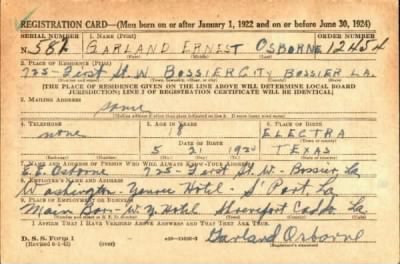 REGISTRATION CARD—(Men born on or after January 1, 1922 and on or before June 30, 1924)
SERIAL NUMBER 1. NAME (Print) ORDER NUMBER
N 582 GARLAND ERNEST OSBORNE 12454
(First) (Middle) (Last)
2. PLACE OF RESIDENCE (Print)
725- First St. W BOSSIER CITY BOSSIER LA.
[THE PLACE OF RESIDENCE GIVEN ON THE LINE ABOVE WILL DETERMINE LOCAL BOARD
JURISDICTION; LINE 2 OF REGISTRATION CERTIFICATE WILL BE IDENTICAL]
3. MAILING ADDRESS
same
4. TELEPHONE 5. AGE IN YEARS 6. PLACE OF BIRTH
none 18 ELECTRA
DATE OF BIRTH
5 21 TEXAS
7. NAME AND ADDRESS OF PERSON WHO WILL ALWAYS KNOW YOUR ADDRESS
E.E. Osborne 725- First St. W- Bossier, La
8. EMPLOYER'S NAME AND ADDRESS
Washington-Youree Hotel - S'Port, La
9. PLACE OF EMPLOYMENT OR BUSINESS
Main Hotel Shreveport Caddo La.
I AFFIRM THAT I HAVE VERIFIED ABOVE ANSWERS AND THAT THEY ARE TRUE.
D. S. S. Form 1
Garland Osborne